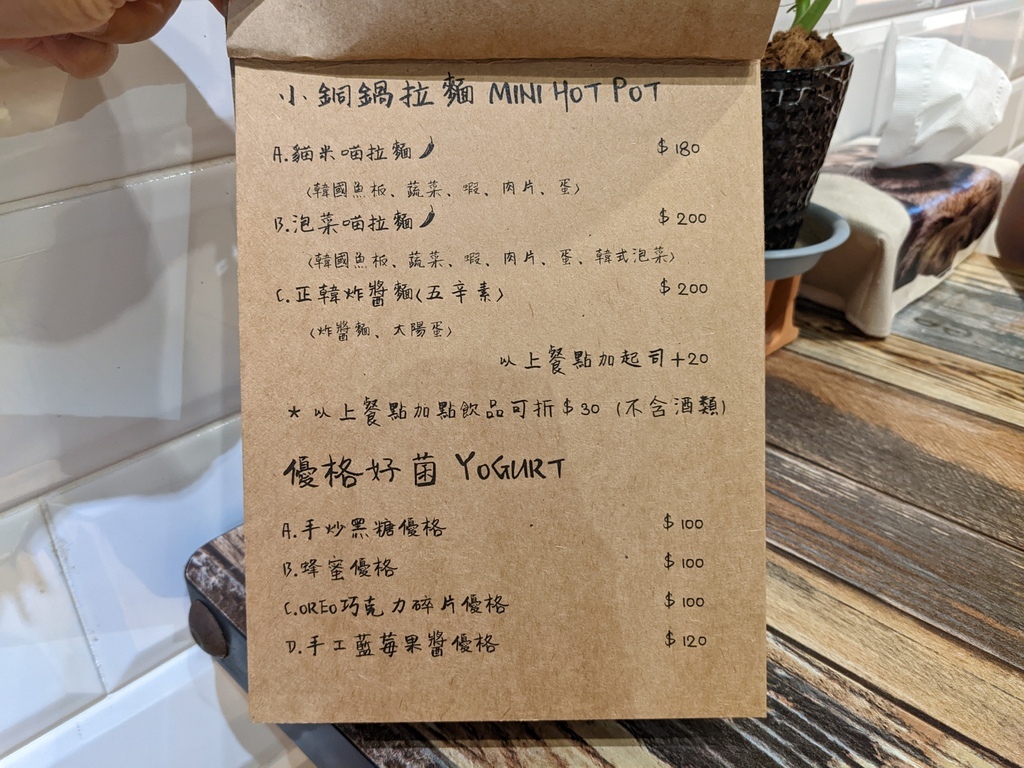 小銅鍋拉麵 MINI HOT POT
A.貓米喵拉麵 $180
(韓國魚板、蔬菜、蝦、肉片、蛋)
B.泡菜喵拉麵 $200
(韓國魚板、蔬菜、蝦、肉片、蛋、韓式泡菜)
C.正韓炸醬麵(五辛素) $200
(炸醬麵、太陽蛋)
以上餐點加起司+20
* 以上餐點加點飲品可折$30 (不含酒類)
優格好菌 YOGURT
A.手炒黑糖優格 $100
B.蜂蜜優格 $100
C.OREO巧克力碎片優格 $100
D.手工藍莓果醬優格 $120